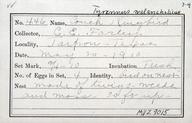 Tyrannus melancholicus
No. 446 Name, Couch Kingbird
Collector, C. E. Farley
Locality, Tarpon - Texas
Date, May 30 - 1911
Set Mark, 4/40 Incubation Fresh
No. of Eggs in Set, 4 Identity, bird on nest
Nest made of twigs, weeds
and moss,
MVZ 3015